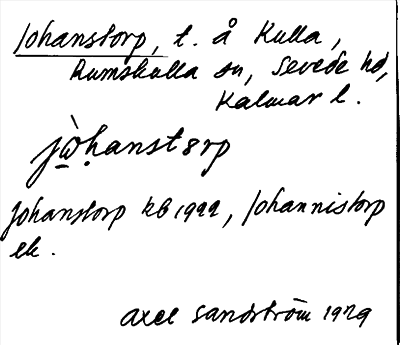 Johanstorp, t. å Kulla,
Rumskulla sn, Sevede hd,
Kalmar l.
jὼ̱hanstorp
Johanstorp KB 1922, Johannistorp
ek.
Axel Sandström 1929